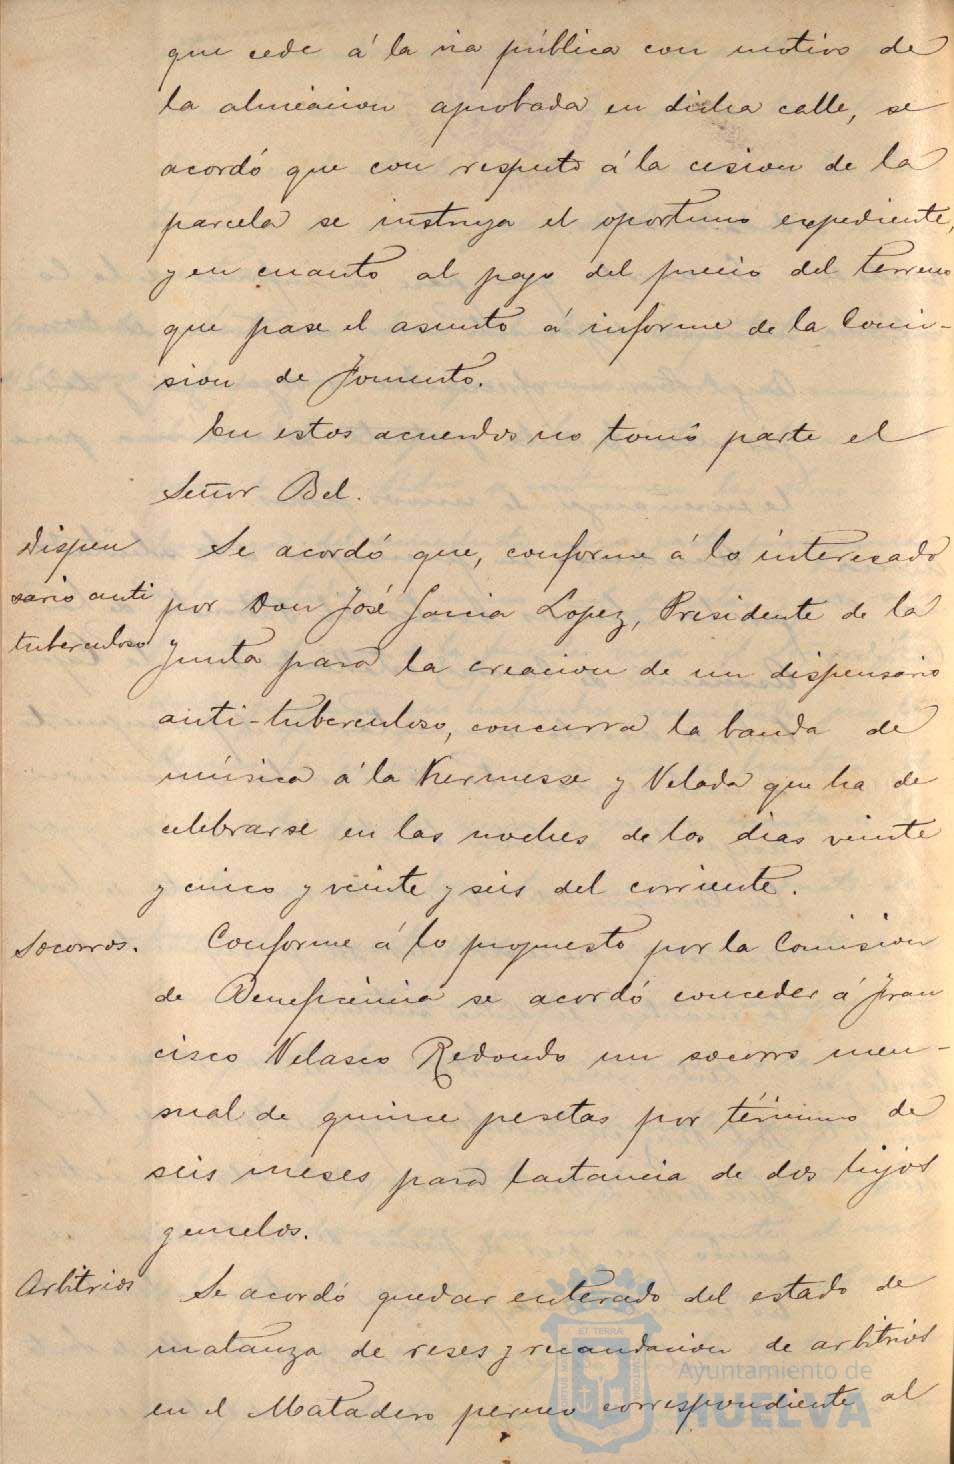 que cede á la via pública con motivo de
la alineacion aprobada en dicha calle, se
acordó que con respecto á la cesion de la
parcela se instruya el oportuno expediente,
y en cuanto al pago del precio del terreno
que pase el asunto á informe de la Comi-
sion de Fomento.
En estos acuerdos no tomó parte el
Señor Bel.
Dispen
sario anti
tuberculoso
Se acordó que, conforme á lo interesado
por Don José Garcia Lopez, Presidente de la
Junta para la creacion de un dispensario
anti-tuberculoso, concurra la banda de
música á la Kermesse y Velada que ha de
celebrarse en las noches de los dias veinte
y cinco y veinte y seis del corriente.
Socorros.
Conforme á lo propuesto por la Comision
de Beneficencia se acordó conceder á Fran
cisco Velasco Redondo un socorro men-
sual de quince pesetas por término de
seis meses para lactancia de dos hijos
gemelos.
Arbitrios
Se acordó quedar enterado del estado de
matanza de reses y recaudacion de arbitrios
en el Matadero correspondiente al
Ayuntamiento de
HUELVA